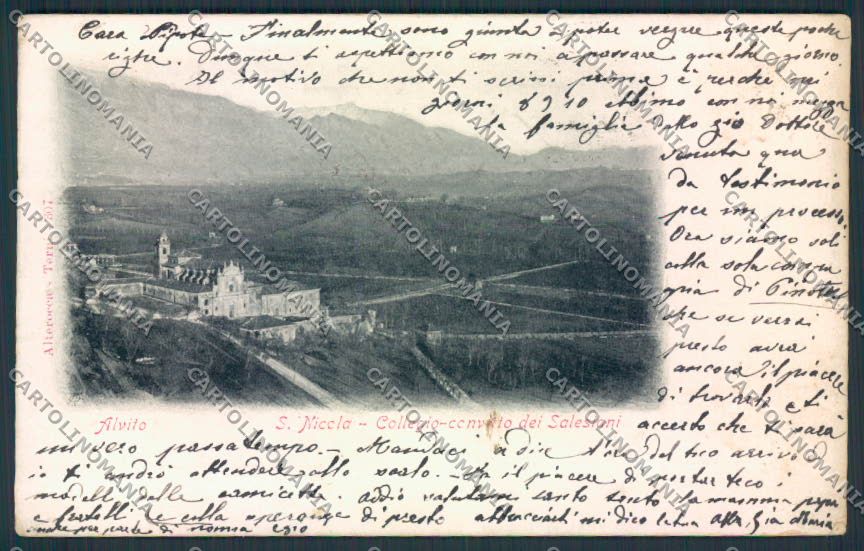 Cara Pipola - Finalmente sono giunta a poter vergare queste poche
righe. Dunque ti aspettiamo con noi a passare qualche giorno.
Il motivo che non ti scrissi prima è perchè nei
giorni 8 9 10 ebbimo con noi
la famiglia dello zio Dottore
venuta qua
da testimonio
per un processo.
Ora siamo soli
colla sola
di
che se verrai
presto avrai
ancora il piacere
di trovarlo e ti
accerto che ti sarà
un vero passatempo. - Mandaci a dire l'ora del tuo arrivo
io ti andrò attendere allo scalo. - il piacere di portar teco i
modelli delle camicette. addio salutami tanto tanto la mamma papà
e fratelli e colla speranza di presto abbracciarti mi dico la tua aff. zia Maria
per parte di nonna
Alvito
S. Nicola - Collegio-convitto dei Salesiani
Alterocca - Terni
CARTOLINOMANIA